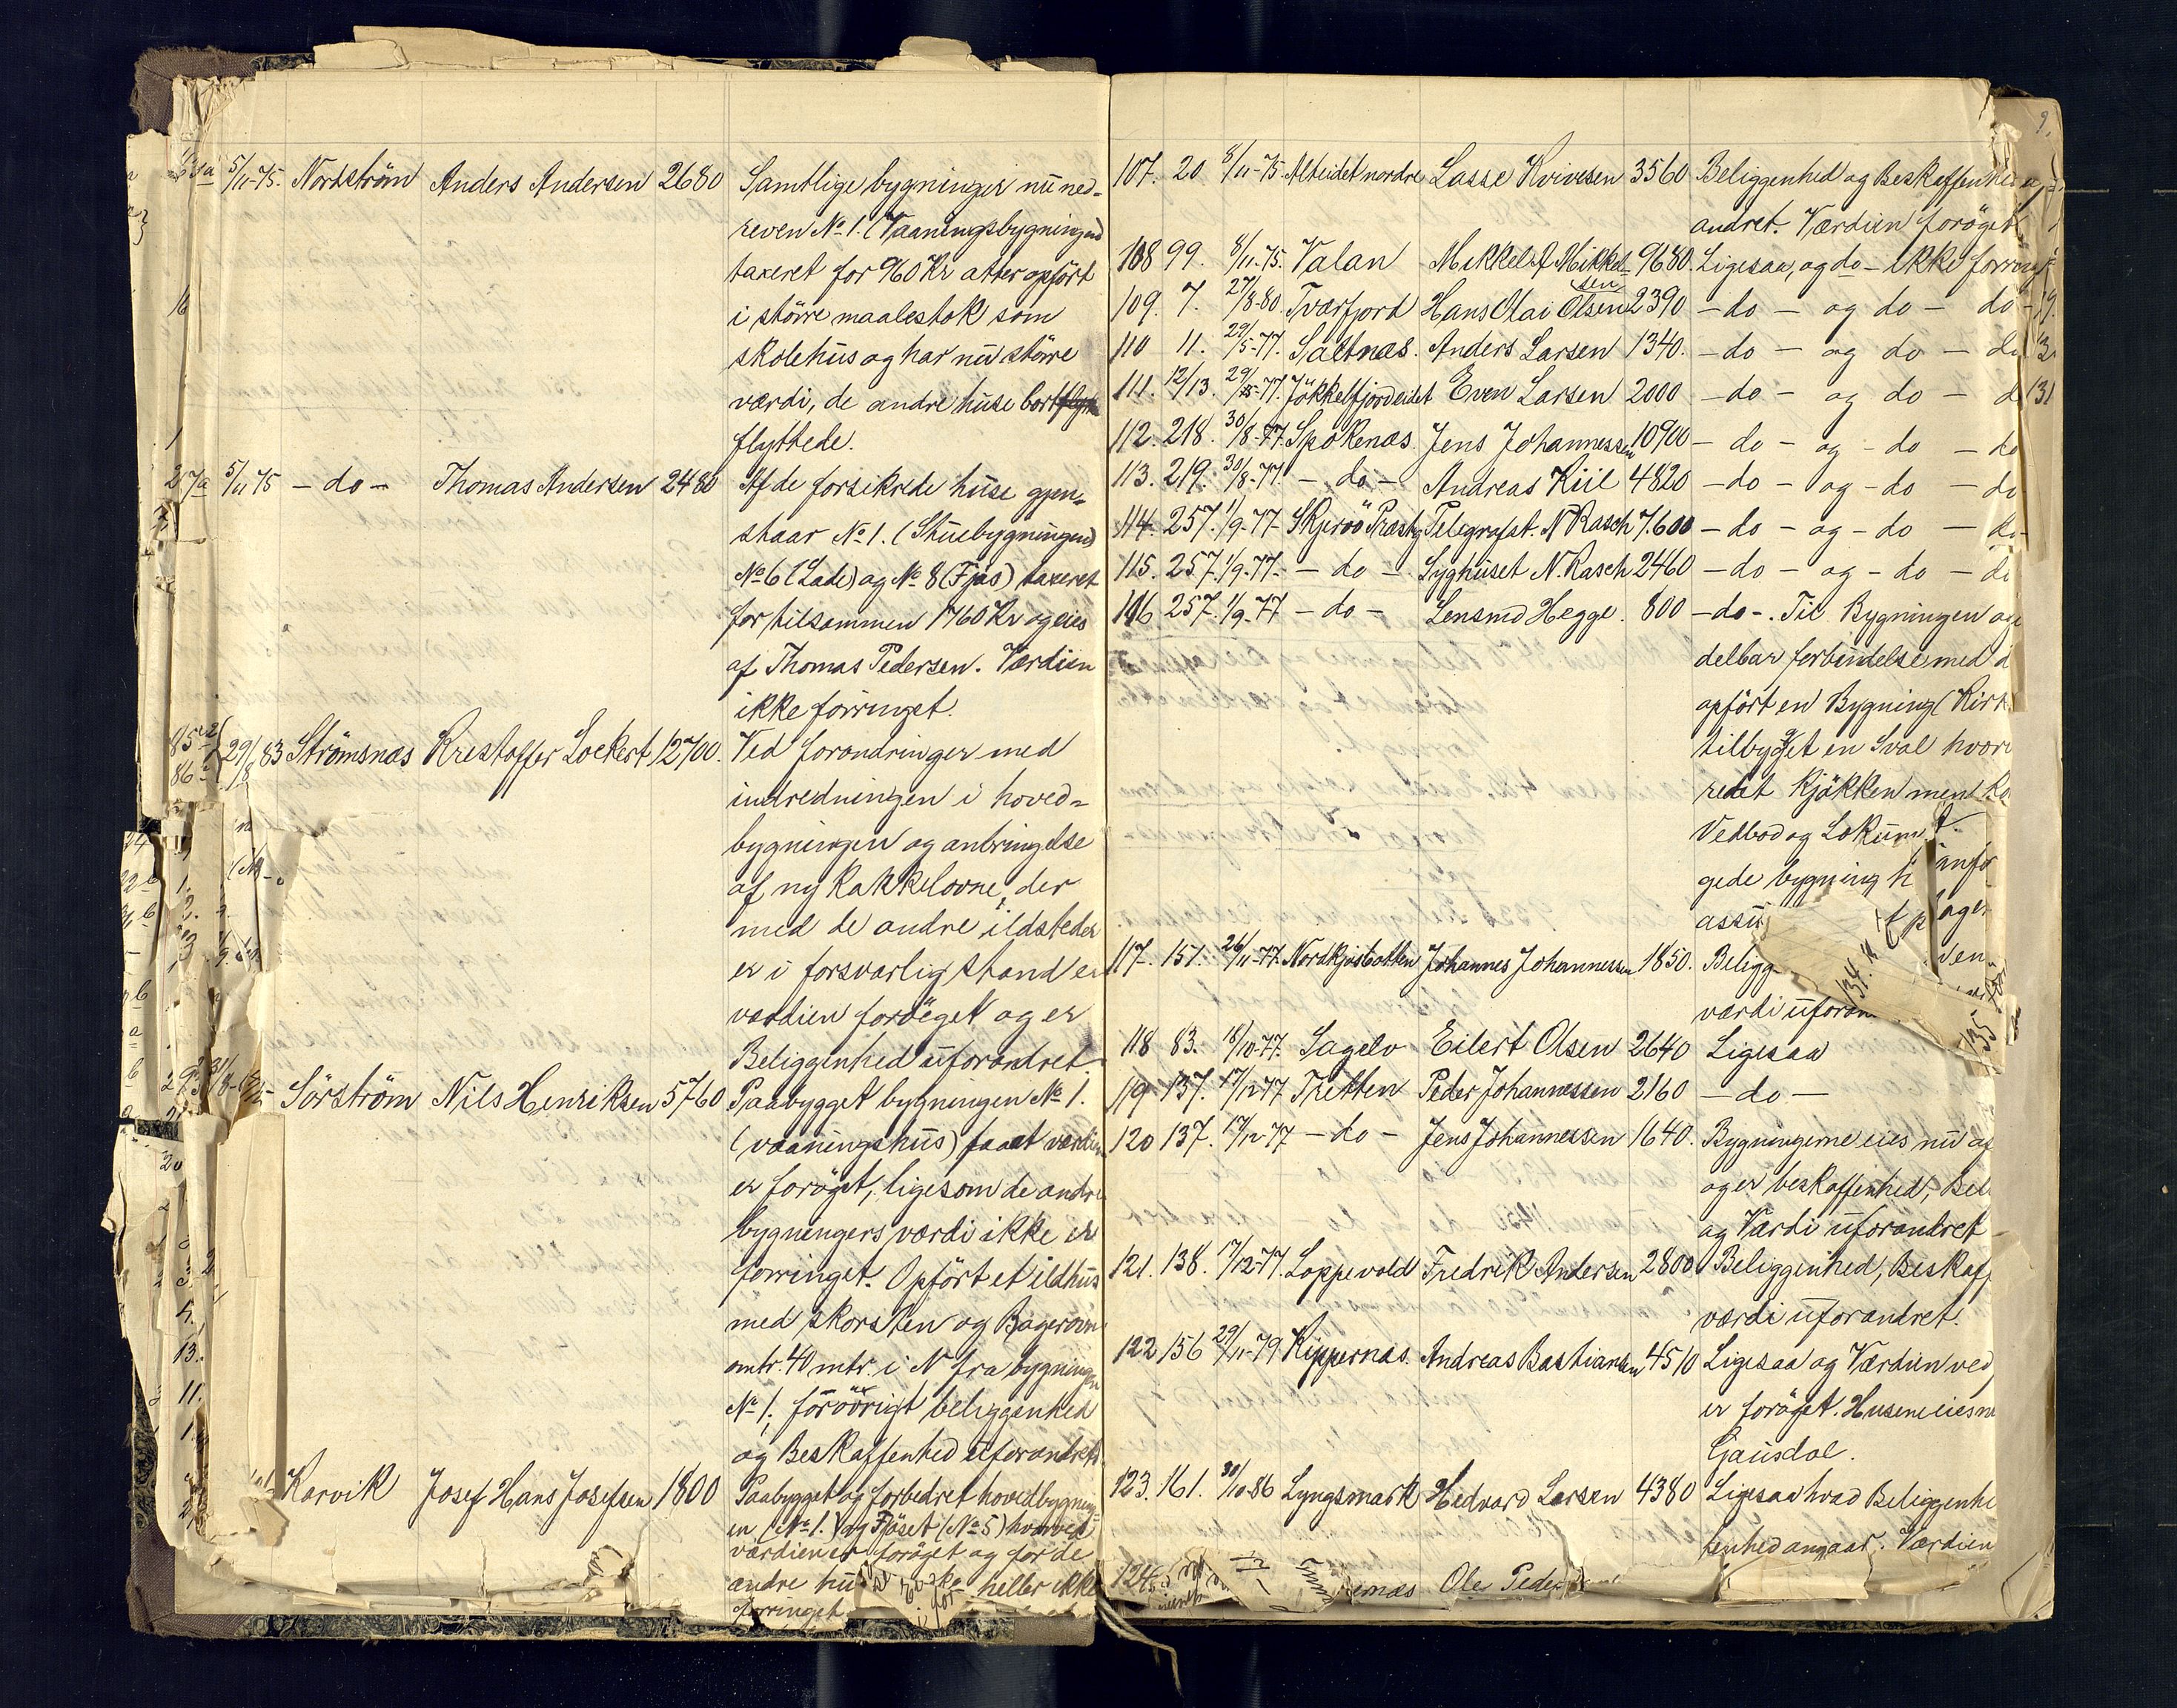 5/11-75. Nordström Anders Andersen 2680 Samtlige bygninger nu ned-
reven No 1. (Vaaningsbygningen)
taxeret for 960 Kr atter opført
i större maalestok som
skolehus og har nu större
værdi, de andre huse bort
flyttede.
27a 5/11 75 - do - Thomas Andersen 2480 Af de forsikrede huse gjen-
staar No 1. (Stuebygningen)
No 6 (Lade) og No 8 (Fjøs) taxeret
for tilsammen 1760 Kr og eies
af Thomas Pedersen. Værdien
ikke forringet.
85 86 29/8 83 Strömsnæs Kristoffer Lockert 12700. Ved forandringer med
indredningen i hoved-
bygningen og anbringelse
af ny kakkelovne, der
med de andre ildsteder
er i forsvarlig stand er
værdien foröget og er
Beliggenhed uforandret.
Sörström Nils Henriksen 5760 Paabygget bygningen No 1.
(vaaningshus) saa at værdien
er foröget, ligesom de andre
bygningers værdi ikke er
forringet. Opfört et ildhus
med skorsten og Bagerovn
omtr. 40 mtr. i N fra bygningen
No 1; forövrigt beliggenhed
og Beskaffenhed uforandret.
Karvik Josef Hans Josefsen 1800 Paabygget og forbedret hovedbygning-
en (No 1.) og Fjöset (No 5) hvorved
værdien er foröget og for de
andre hu heller ikke
forringet
9.
107. 20 8/11-75. Alteidet nordre Lasse Kvivesen 3560 Beliggenhed og Beskaffenhed
andret. Værdien foröget
108 99. 8/11-75. Valan Mikkel A Mikkel-sen 9680. Ligesaa, og do - ikke forring
109. 7. 27/8-80. Tværfjord Hans Olai Olsen 2390 - do - og do - do
110 11. 29/5-77. Saltnæs. Anders Larsen 1340. - do - og do - do
111. 12/13. 29/5-77. Jökkelfjordeidet Even Larsen 2000 - do - og do - d
112. 218. 30/8-77 Spokenæs. Jens Johannessen 10900 - do - og - do - do
113. 219. 30/8-77. - do - Andreas Kiil 4820 - do - og - do - do
114. 257. 1/9-77- Skjervö Præstg Telegrafst. N Rasch 7.600 - do - og - do - do
115. 257. 1/9-77.- - do - Syghuset N. Rasch 2460 - do - og - do - do
116 257. 1/9-77 - do - Lensmd Hegge. 800 - do -. Til Bygningen og
delbar forbindelse med d
opfört en Bygning (Kirk
tilbygget en Sval hvori
redet Kjökken ment ko
Vedbod og Lokum
gede bygning
assu
117. 151. 26/11-77. Nordkjosbotten Johannes Johannessen 1850. Beligg-
værdi uforan
118 83. 18/10-77. Sagelv Eilert Olsen 2640 Ligesaa
119 137. 17/12-77 Tretten Peder Johannessen 2160 - do -
120 137. 17/12-77 - do - Jens Johannessen 1640. Bygningerne eies nu af
og er beskaffenhed, Bel
og Værdi uforandret
121. 138. 17/12-77. Loppevold Fredrik Andersen 2800 Beliggenhed, Beskaf
værdi uforandret.
122 156 29/11-79 Kippernæs. Andreas Bastiansen 4510 Ligesaa og Værdien ved
er foröget. Husene eies nu
Gausdal.
123. 161. 30/10-86 Lyngsmark Hedvard Larsen 4380 Ligesaa hvad Beliggenhe
fenhed angaar. Værdien
124. Ole Peder
134.
135